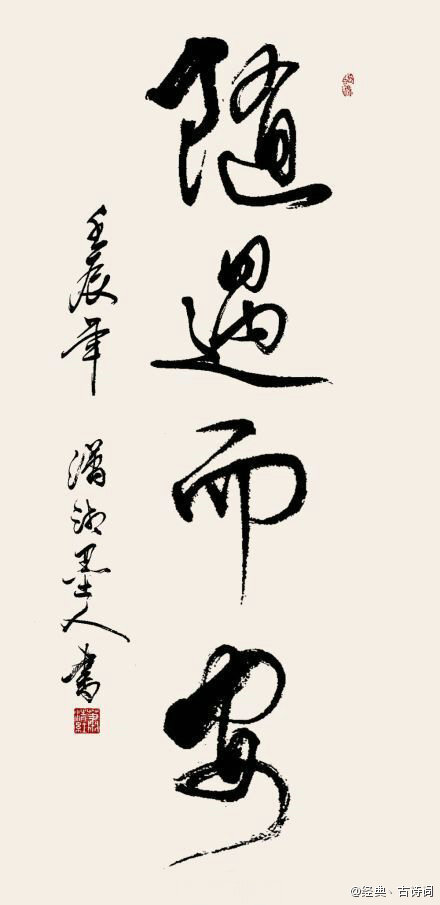 随遇而安
壬辰年 潇湘墨人书
@经典、古诗词